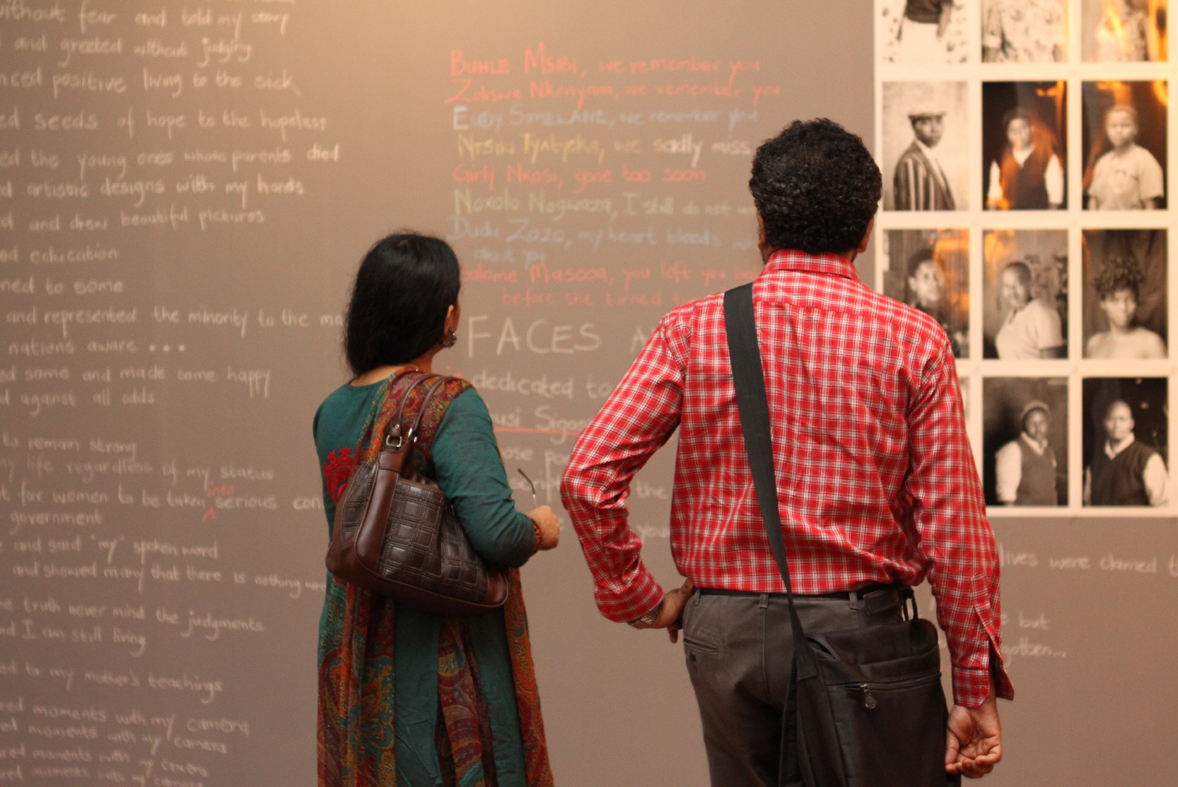 without fear and told my story
and greeted without judging
nced positive living to the sick
ed seeds of hope to the hopeless
ed the young ones whose parents died
d artistic designs with my hands
d and drew beautiful pictures
ed education
ned to some
and represented the minority to the ma
nations aware ...
ed some and made some happy
d against all odds
to remain strong
my life regardless of my status
t for women to be taken into serious con
government
and said "my" spoken word
and showed many that there is nothing wr
e truth never mind the judgments
nd I am still living
ed to my mother's teachings
red moments with my camera
ed moments with my camera
ared moments with my camera
red moments with my camera
BUHLE MSIBI, we remember you
Zoliswa Nkonyana, we remember you
EUDY SIMELANE, we remember you
Iyatyeka, we sadly miss
Curly Nkosi, gone too soon
Noxolo Nogwaza, I still do not
Dudu Zozo, my heart bleeds
about you
Masooa, you left you
before she turned
FACES A
dedicated to
usi Sigas
ose po
the
lives were claimed t
but
gotten...